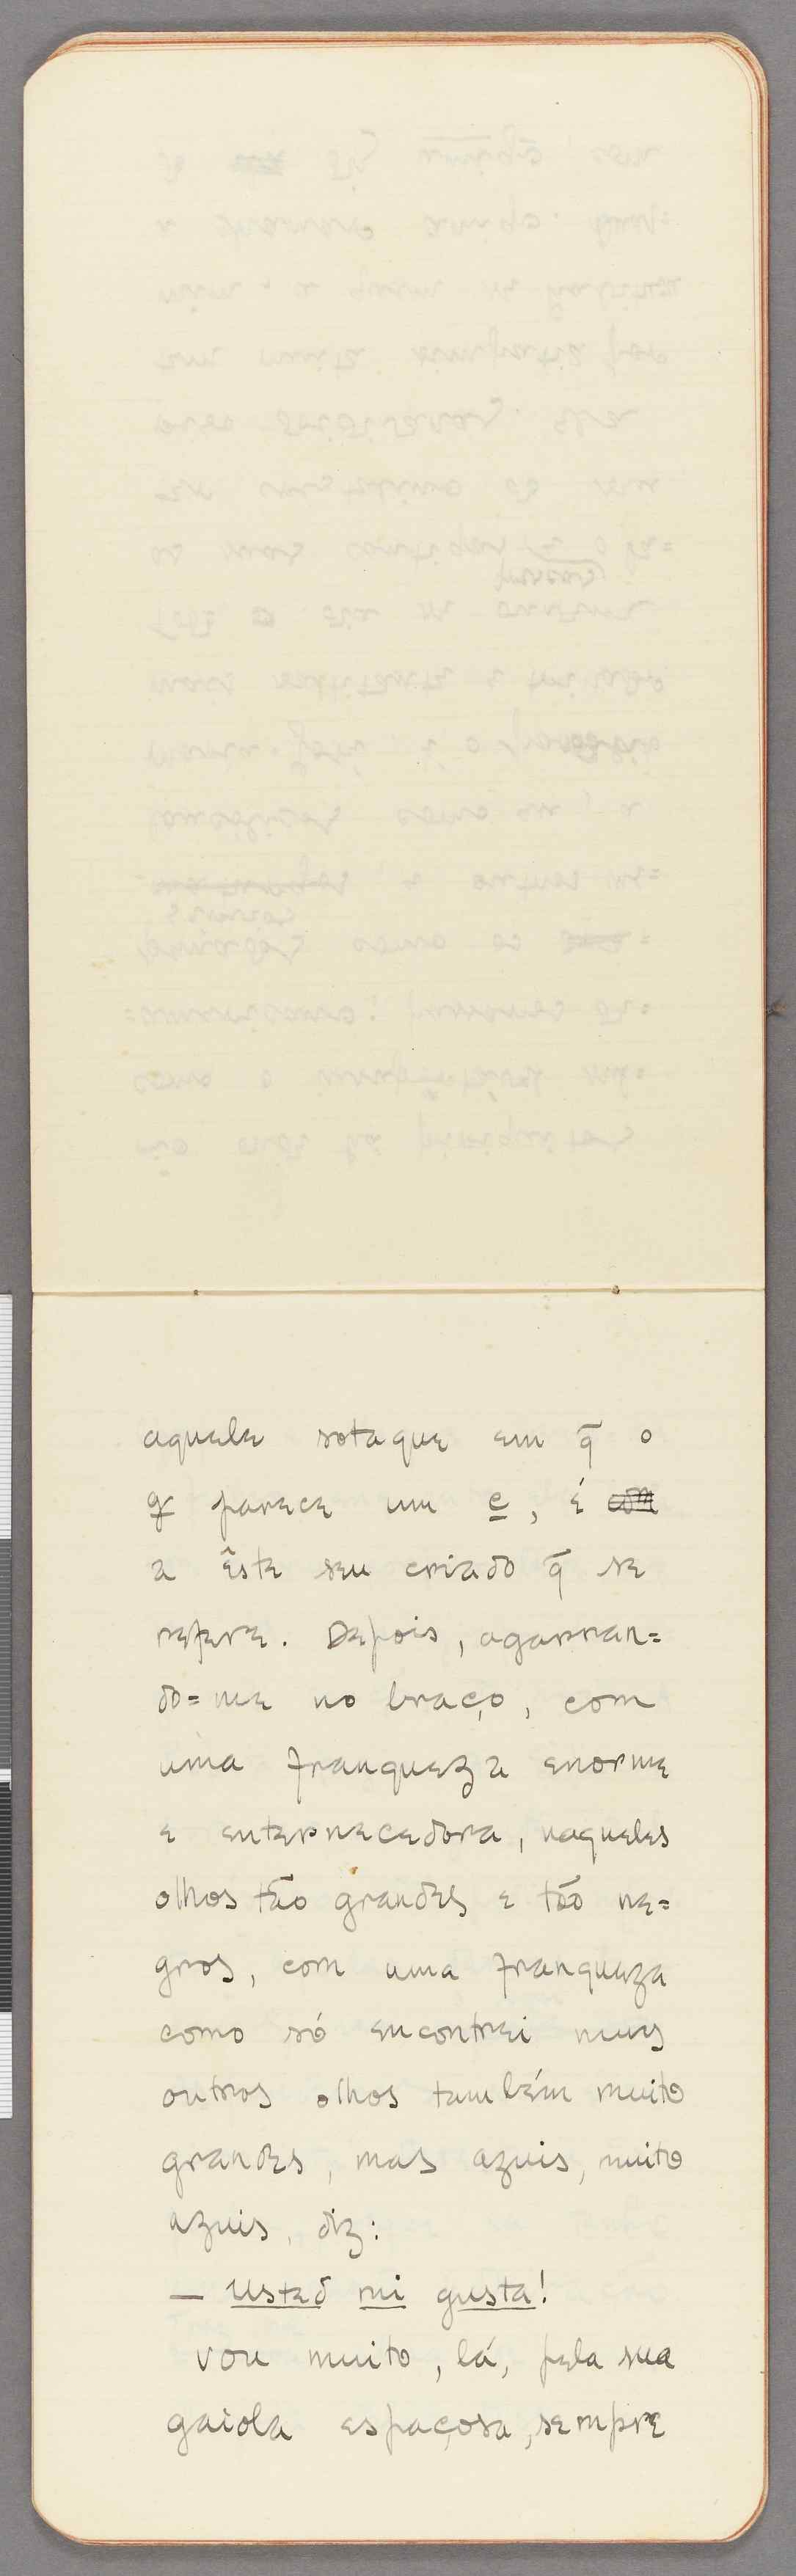 aquele sotaque em q̄ o
g parece um e, é com
a êste seu criado q̄ se
refere. Depois, agarran=
do=me no braço, com
uma franqueza enorme
e enternecedora, naqueles
olhos tão grandes e tão ne=
gros, com uma franqueza
como só encontrei nuns
outros olhos também muito
grandes, mas azuis, muito
azuis, diz:
— Usted mi gusta!
Vou muito, lá, pela sua
gaiola espaçosa, sempre